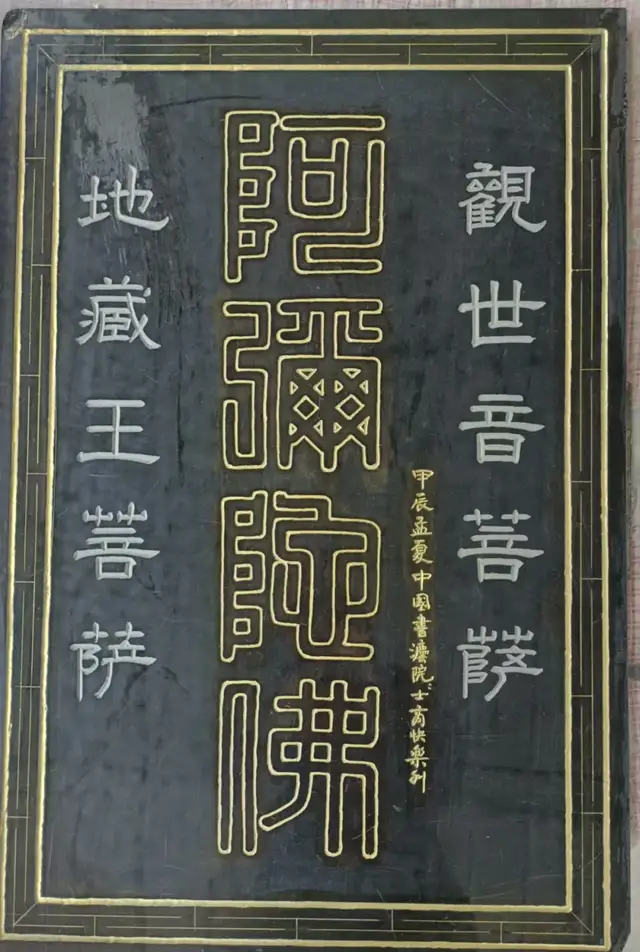 觀世音菩薩
阿彌陀佛
甲辰孟夏中國書灋院士商快樂刻
地藏王菩萨